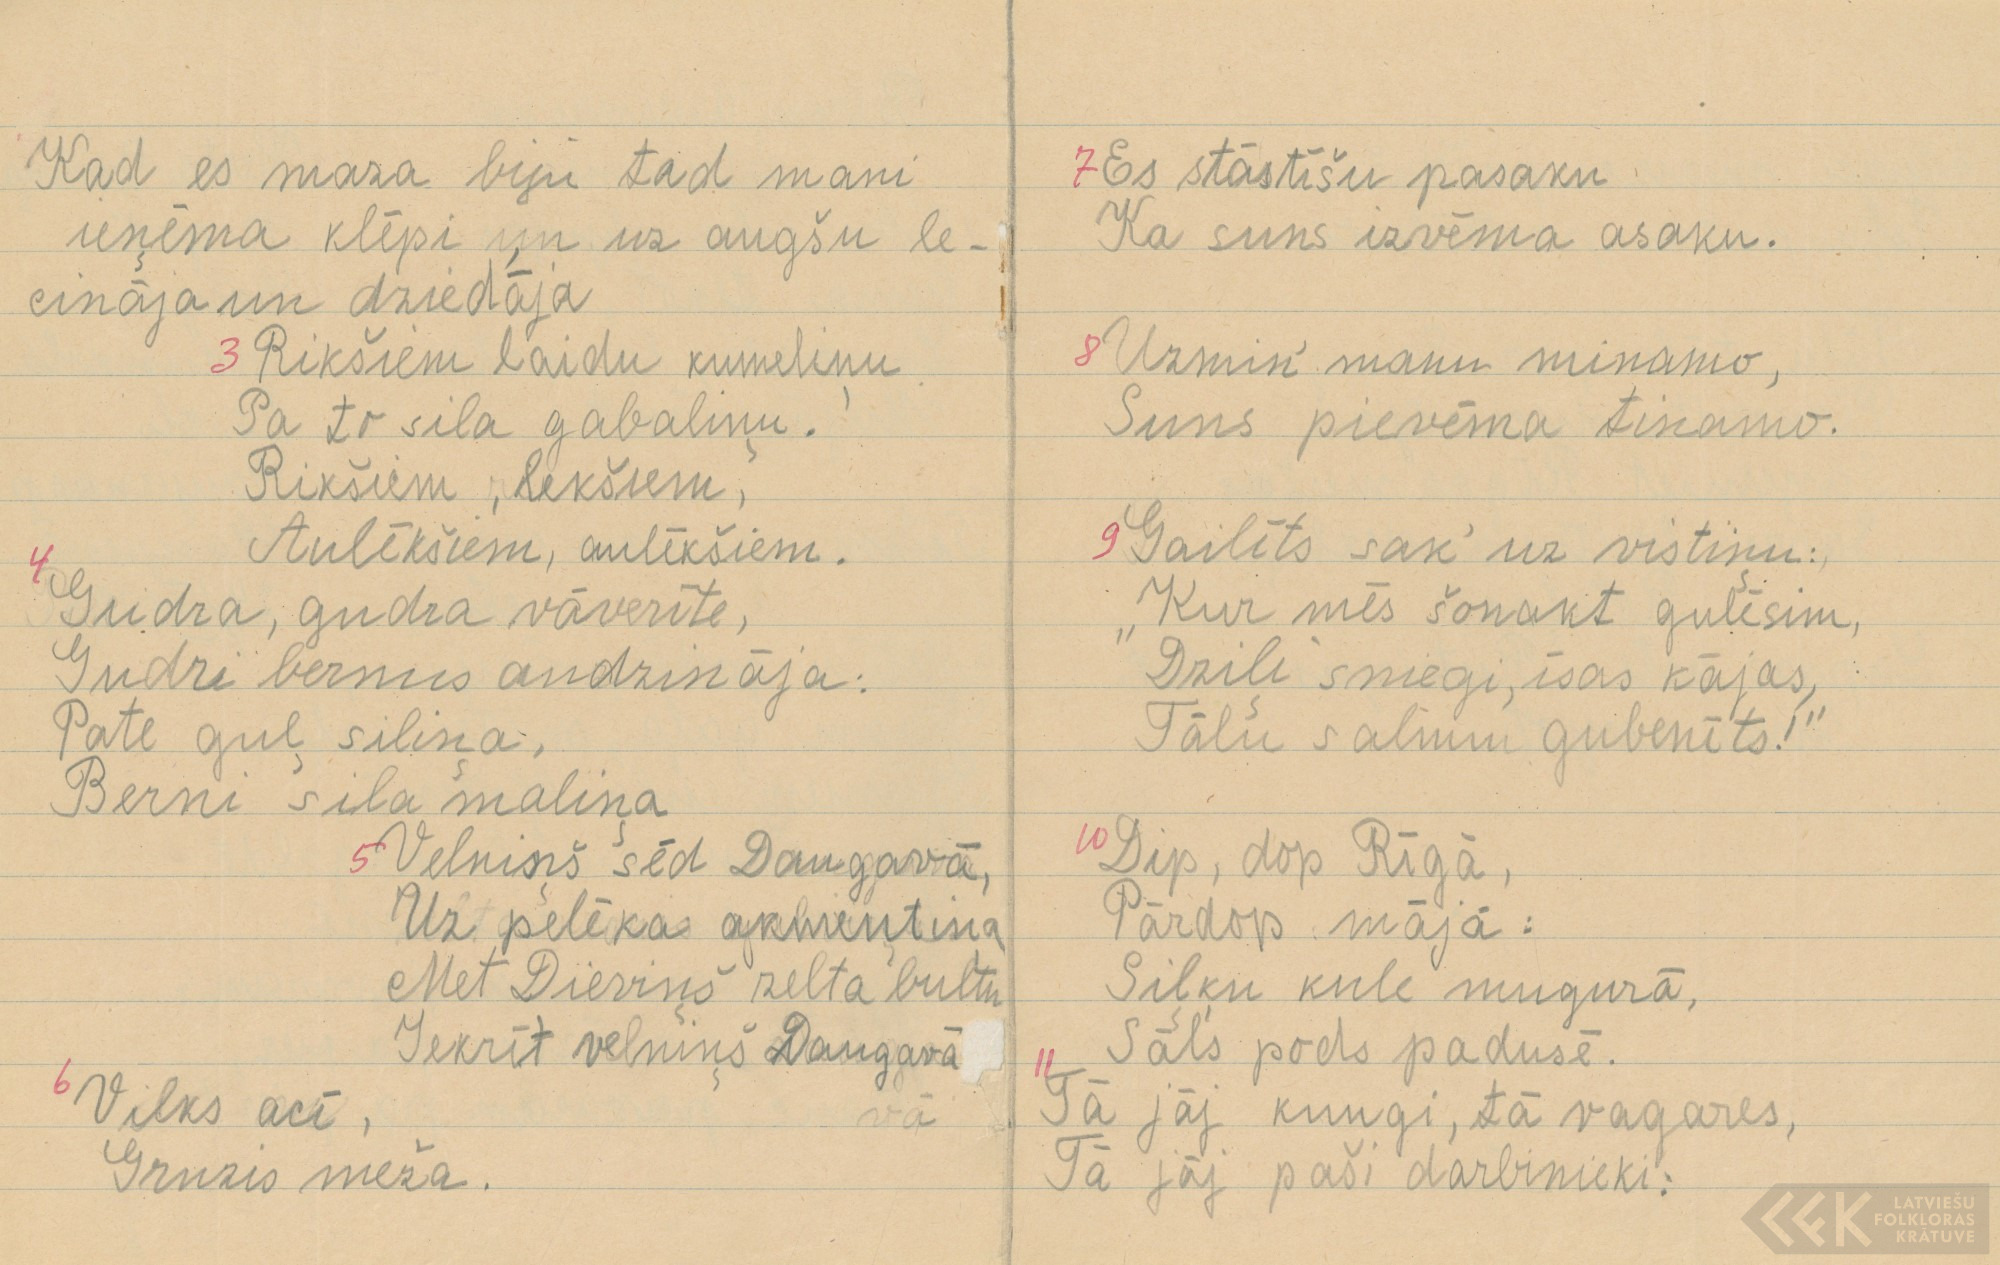 Kad es maza biju tad mani
ieņēma klēpi un uz augšu le-
cināja un dziedāja
3 Rikšiem laidu kumeliņu
Pa to sila gabaliņu!
Rikšiem, lekšiem,
Aulēkšiem, aulēkšiem.
4
Gudra, gudra vāverīte,
Gudri bernus audzināja:
Pate guļ siliņa,
Berni sila maliņa
5 Velniņš sēd Daugavā,
Uz pelēka akmeņtiņa
Met Dieviņš zelta bultu
Iekrīt velniņš Daugavā
vā
6 Vilks acī,
Gruzis meža.
7 Es stāstīšu pasaku
Ka suns izvēma asaku.
8 Uzmin' manu minamo,
Suns pievēma tinamo.
9 Gailīts sak' uz vistiņu:
„Kur mēs šonakt gulēsim,
Dziļi sniegi, īsas kājas,
Tālu salmu gubenīts!"
10 Dip, dop Rīgā,
Pārdop mājā:
Siļķu kule mugurā,
Sāls pods padusē.
11
Tā jāj kungi, tā vagares,
Tā jāj paši darbinieki:
LATVIEŠU
FOLKLORAS
KRĀTUVE